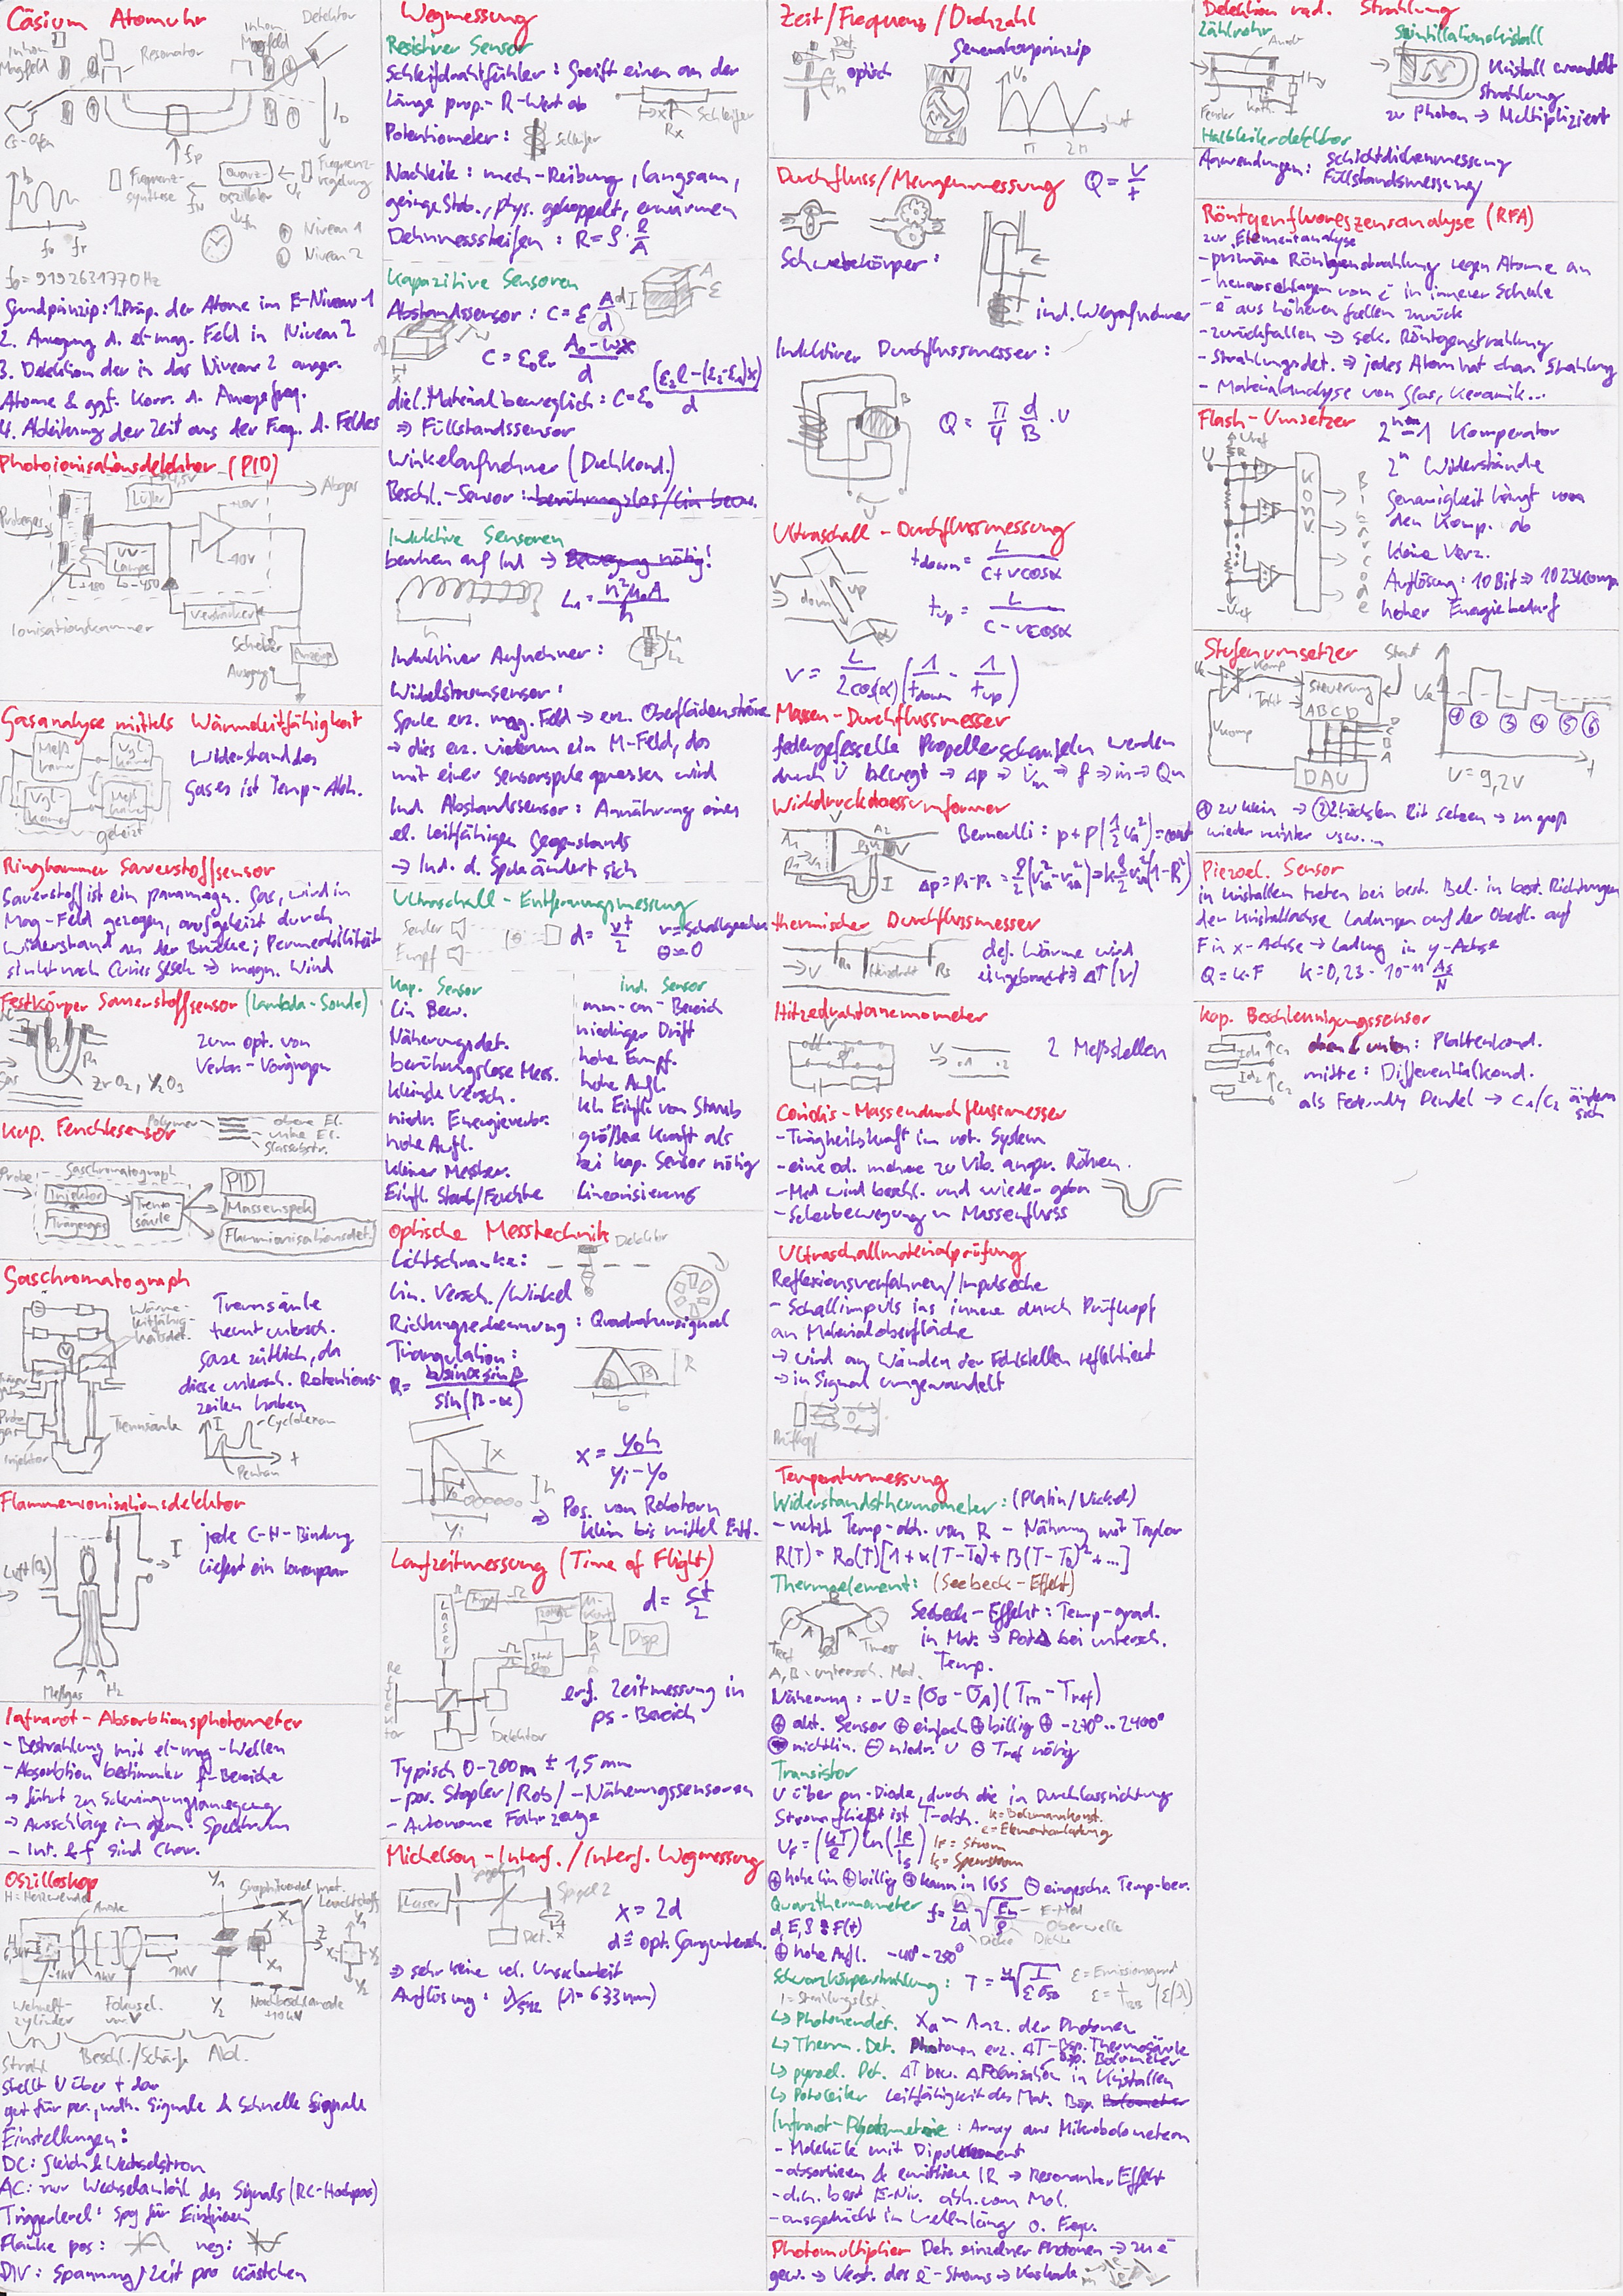 Cäsium Atomuhr
Inhom Magfeld
Resonator
Inhom Magfeld
Detektor
Cs-Ofen
I_D
f_p
Frequenz-
synthese
Quarz-
oszillator
Frequenz-
regelung
Niveau 1
Niveau 2
f₀ = 9192631770 Hz
Grundprinzip: 1. Präp. der Atome im E-Niveau 1
2. Anregung d. el-mag. Feld in Niveau 2
3. Detektion der in das Niveau 2 anger.
Atome & ggf. Korr. d. Anregefreq.
4. Ableitung der Zeit aus der Freq. d. Feldes
Photoionisationsdetektor (PID)
Lüfter
Abgas
Probegas
UV-
Lampe
Verstärker
Ionisationskammer
Schreiber
Ausgang
Anzeige
Gasanalyse mittels Wärmeleitfähigkeit
Widerstand des
Gases ist Temp-Abh.
geheizt
Ringkammer Sauerstoffsensor
Sauerstoff ist ein paramagn. Gas, wird in
Mag-Feld gezogen, aufgeheizt durch
Widerstand an der Brücke; Permeabilität
sinkt nach Curies Gesetz ⇒ magn. Wind
Festkörper Sauerstoffsensor (Lambda-Sonde)
zum opt. von
Verbr.-Vorgängen
Gas
ZrO₂, Y₂O₃
Kap. Feuchtesensor
Polymer
obere El.
untere El.
Glassubstr.
Probe
Gaschromatograph
Injektor
Trägergas
Trenn
säule
PID
Massenspek
Flammionisationsdet.
Gaschromatograph
Wärme-
leitfähig-
keitsdet.
Trennsäule
trennt untersch.
Gase zeitlich, da
diese untersch. Retentions-
zeiten haben
Probe
gas
Injektor
Trennsäule
Cyclohexan
Pentan
Flammenionisationsdetektor
Luft (O₂)
jede C-H-Bindung
liefert ein Ionenpaar
Meßgas
H₂
Infrarot-Absorbtionsphotometer
- Bestrahlung mit el-mag-Wellen
- Absorbtion bestimmter f-Bereiche
→ führt zu Schwingungsanregung
→ Ausschläge im gem. Spektrum
- Int. & f sind Char.
Oszilloskop
H = Heizwendel
Anode
Graphitwendel
Leuchtstoff
Wehnelt-
zylinder
Fokusel.
var. V
Nachbeschl.anode
+10kV
Strahl
Beschl./Schärfe
Abl.
stellt U über t dar
gut für per., wdh. Signale & schnelle Signale
Einstellungen:
DC: Gleich & Wechselstrom
AC: nur Wechselanteil des Signals (RC-Hochpass)
Triggerlevel: Spg für Einfrieren
Flanke pos: neg:
DIV: Spannung/Zeit pro Kästchen
Wegmessung
Resistiver Sensor
Schleifdrahtfühler: Greift einen an der
Länge prop.- R-Wert ab
Schleifer
R_x
Potentiometer: Schleifer
Nachteile: mech-Reibung, langsam,
geringe Stab., phys. gekoppelt, erwärmen
Dehnmessstreifen: R = ρ · l/A
Kapazitive Sensoren
Abstandssensor: C = ε A/d
C = ε₀εᵣ (A₀-wx)/d
diel. Material beweglich: C = ε₀ (ε₂l-(ε₂-ε₁)x)/d
⇒ Füllstandssensor
Winkelaufnehmer (Drehkond.)
Beschl.-Sensor: berührungslos/lin bew.
Induktive Sensoren
beruhen auf Ind → Bewegung nötig!
L₁ = n²μ₀A/h
Induktiver Aufnehmer:
Wirbelstromsensor:
Spule erz. mag. Feld → erz. Oberflächenströme
→ dies erz. wiederum ein M-Feld, das
mit einer Sensorspule gemessen wird
Ind. Abstandssensor: Annährung eines
el. leitfähigen Gegenstands
→ Ind. d. Spule ändert sich
Ultraschall-Entfernungsmessung
Sender
Empf
d = vt/2
v = Schallgeschw.
Θ ≈ 0
Kap. Sensor
lin Bew.
Näherungsdet.
berührungslose Mess.
kleinste Versch.
niedr. Energieverbr.
hohe Aufl.
kleiner Messber.
Einfl. Staub/Feuchte
ind. Sensor
mm-cm-Bereich
niedriger Drift
hohe Empf.
hohe Aufl.
kl. Einfl. von Staub
größere Kraft als
bei kap. Sensor nötig
Linearisierung
Optische Messtechnik
Detektor
Lichtschranke:
Lin. Versch./Winkel
Richtungserkennung: Quadratursignal
Triangulation:
R = b sinα sinβ / sin(β-α)
x = y₀h / (yᵢ-y₀)
⇒ Pos. von Robotern
klein bis mittel Entf.
Laufzeitmessung (Time of Flight)
d = ct/2
Laser
Disp
Reflektor
Detektor
erf. Zeitmessung in
ps-Bereich
Typisch 0-200m ± 1,5 mm
- par. Stapler/Rob/-Näherungssensoren
- Autonome Fahrzeuge
Michelson-Interf./Interf. Wegmessung
Laser
Spiegel 1
Spiegel 2
Det.
x = 2d
d ≙ opt. Ganguntersch.
⇒ sehr kleine rel. Unsicherheit
Auflösung: λ/512 (λ = 633nm)
Zeit/Frequenz/Drehzahl
Det.
optisch
Generatorprinzip
Durchfluss/Mengenmessung Q = V/t
Schwebekörper:
ind. Wegaufnehmer
Induktiver Durchflussmesser:
Q = π/4 d/B · U
Ultraschall-Durchflussmessung
down
up
t_down = L/(c+v cosα)
t_up = L/(c-v cosα)
v = L/(2cos(α)) (1/t_down - 1/t_up)
Massen-Durchflussmesser
federgefesselte Propellerschaufeln werden
durch V̇ bewegt → Δp ⇒ V̇m ⇒ f ⇒ ṁ → Qm
Wirkdruckdurchflussumformer
Bernoulli: p + ρ(½v²) = const
thermischer Durchflussmesser
Heizdraht
def. Wärme wird
eingebracht ⇒ ΔT(v)
Hitzedrahtanemometer
2 Meßstellen
Coriolis-Massendurchflussmesser
- Trägheitskraft im rot. System
- eine od. mehrere zu Vib. anger. Röhren.
- Med wird beschl. und wieder gebr.
- Scherbewegung ~ Massenfluss
Ultraschallmaterialprüfung
Reflexionsverfahren/Impulsecho
- Schallimpuls ins innere durch Prüfkopf
an Materialoberfläche
→ wird an Wänden der Fehlstellen reflektiert
→ in Signal umgewandelt
Prüfkopf
Temperaturmessung
Widerstandsthermometer: (Platin/Nickel)
- nutzt Temp-abh. von R - Nährung mit Taylor
R(T) = R₀(T)[1+α(T-T₀)+β(T-T₀)²+...]
Thermoelement: (Seebeck-Effekt)
Seebeck-Effekt: Temp-grad.
in Mat. → PotΔ bei untersch.
Temp.
T_ref
T_mess
A, B - untersch. Mat.
Näherung: -U = (σ_B - σ_A)(T_m - T_ref)
⊕ akt. Sensor ⊕ einfach ⊕ billig ⊕ -270°..2400°
⊖ nichtlin. ⊖ niedr. U ⊖ T_ref nötig
Transistor
U über pn-Diode, durch die in Durchlassrichtung
Strom fließt ist T-abh.
k = Bolzmannkonst.
e = Elementarladung
U_F = (kT/e) ln(I_F/I_S)
I_F = Strom
I_S = Sperrstrom
⊕ hohe lin ⊕ billig ⊕ kann in IGS ⊖ eingeschr. Temp-ber.
Quarzthermometer f = n/2d √(E/ρ)
E-Mod
Oberwelle
Dicke
Dichte
d, E, ρ = F(t)
⊕ hohe Aufl. -40°-250°
Schwarzkörperstrahlung: T = ⁴√(I/εσ)
ε = Emissionsgrad
I = Strahlungsint.
↳ Photonendet. X_a ~ Anz. der Photonen
↳ Therm. Det. Photonen erz. ΔT - Bsp. Thermosäule
Bsp. Bolometer
↳ pyroel. Det. ΔT bew. ΔPolarisation in Kristallen
↳ Fotoleiter Leitfähigkeit des Mat. Bsp. Bolometer
Infrarot-Photometrie: Array aus Mikrobolometern
- Moleküle mit Dipolmoment
- absorbieren & emittieren IR → Resonanter Effekt
- d.h. best. E-Niv. abh. vom Mol.
- ausgedrückt in Wellenläng o. Freq.
Photomultiplier Det. einzelner Photonen → zu e⁻
gew. → Verst. des e⁻-Stroms → Kaskade
Detektion rad. Strahlung
Zählrohr
Anode
Fenster
Kath.
Szintillationskristall
Kristall wandelt
Strahlung
zu Photon → Multipliziert
Halbleiterdetektor
Anwendungen: Schichtdickenmessung
Füllstandsmessung
Röntgenfluoreszensanalyse (RFA)
zur Elementanalyse
- primäre Röntgenstrahlung regen Atome an
- herausschlagen von e⁻ in innerer Schale
- e⁻ aus höheren fallen zurück
- zurückfallen → sek. Röntgenstrahlung
- Strahlungsdet. ⇒ jedes Atom hat char. Strahlung
- Materialanalyse von Glas, Keramik...
Flash-Umsetzer
2ⁿ-1 Komperator
2ⁿ Widerstände
Genauigkeit hängt von
den Komp. ab
kleine Verz.
Auflösung: 10Bit ⇒ 1023 Komp.
hoher Energiebedarf
U_ref
-U_ref
KONV.
Binärcode
Stufenumsetzer
Komp
Takt
Steuerung
ABCD
Start
U_komp
DAU
U = 9,2V
① zu klein → ② nächsten Bit setzen → zu groß
wieder runter usw...
Piezoel. Sensor
in Kristallen treten bei best. Bel. in best. Richtungen
der Kristallachse Ladungen auf der Oberfl. auf
F in x-Achse → Ladung in y-Achse
Q = k·F k = 0,23 · 10⁻¹¹ As/N
Kap. Beschleunigungssensor
oben & unten: Plattenkond.
mitte: Differentialkond.
als Federndes Pendel → C₁/C₂ ändern
sich